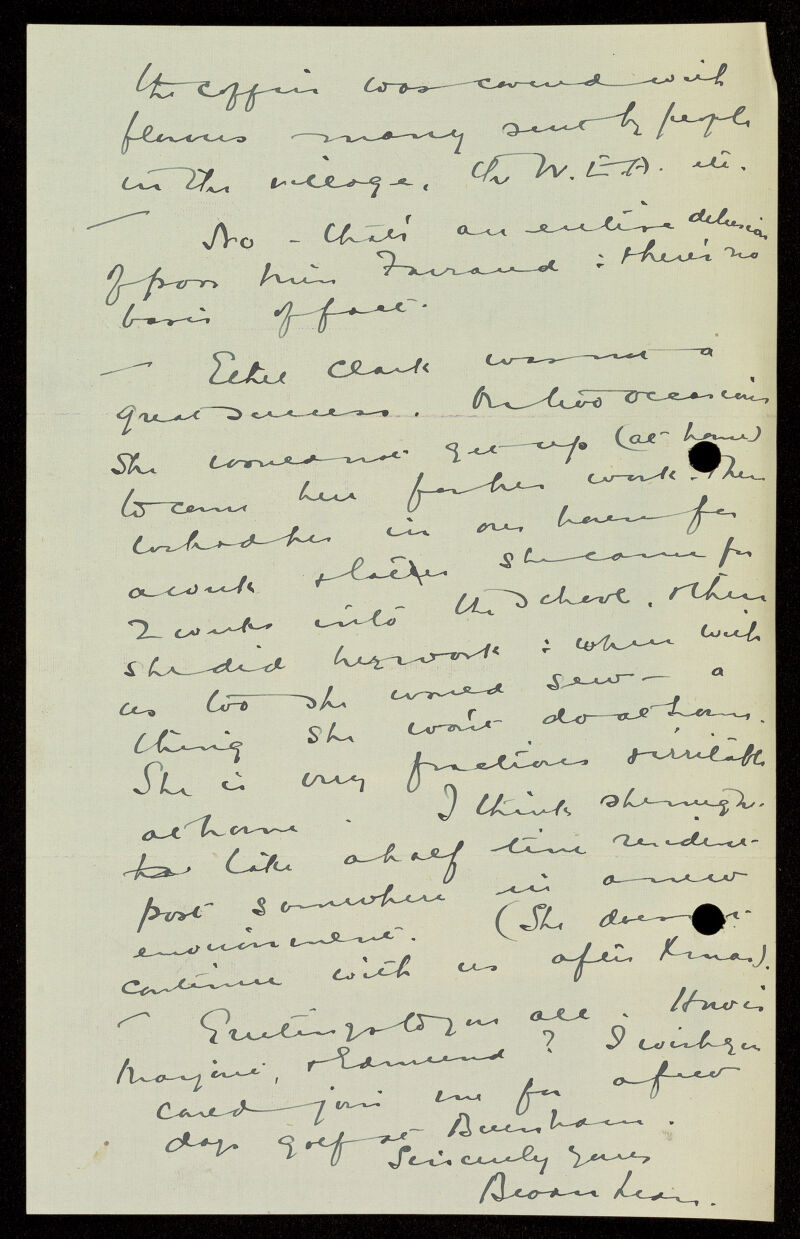 the coffin was covered with
flowers many sent by people
in the village, the W.E.A. etc.
— No – that's an entire delusion
of poor Miss Farrand : there's no
basis of fact.
— Ethel Clark was not a
great success. On two occasions
she would not get up (at home)
to come here for her work. Then
we had her in our house for
a week & later she came for
2 weeks into the School, & then
she did her work : when with
us too she would sew – a
thing she won't do at home.
She is very fractious & irritable
at home. I think she might
take a half time resident
post somewhere in a new
environment. (She does not
continue with us after Xmas).
— Greetings to you all. How is
Marjorie, & Edmund? I wish you
cared join me for a few
days golf at Burnham.
Sincerely yours
Bevan Lean.